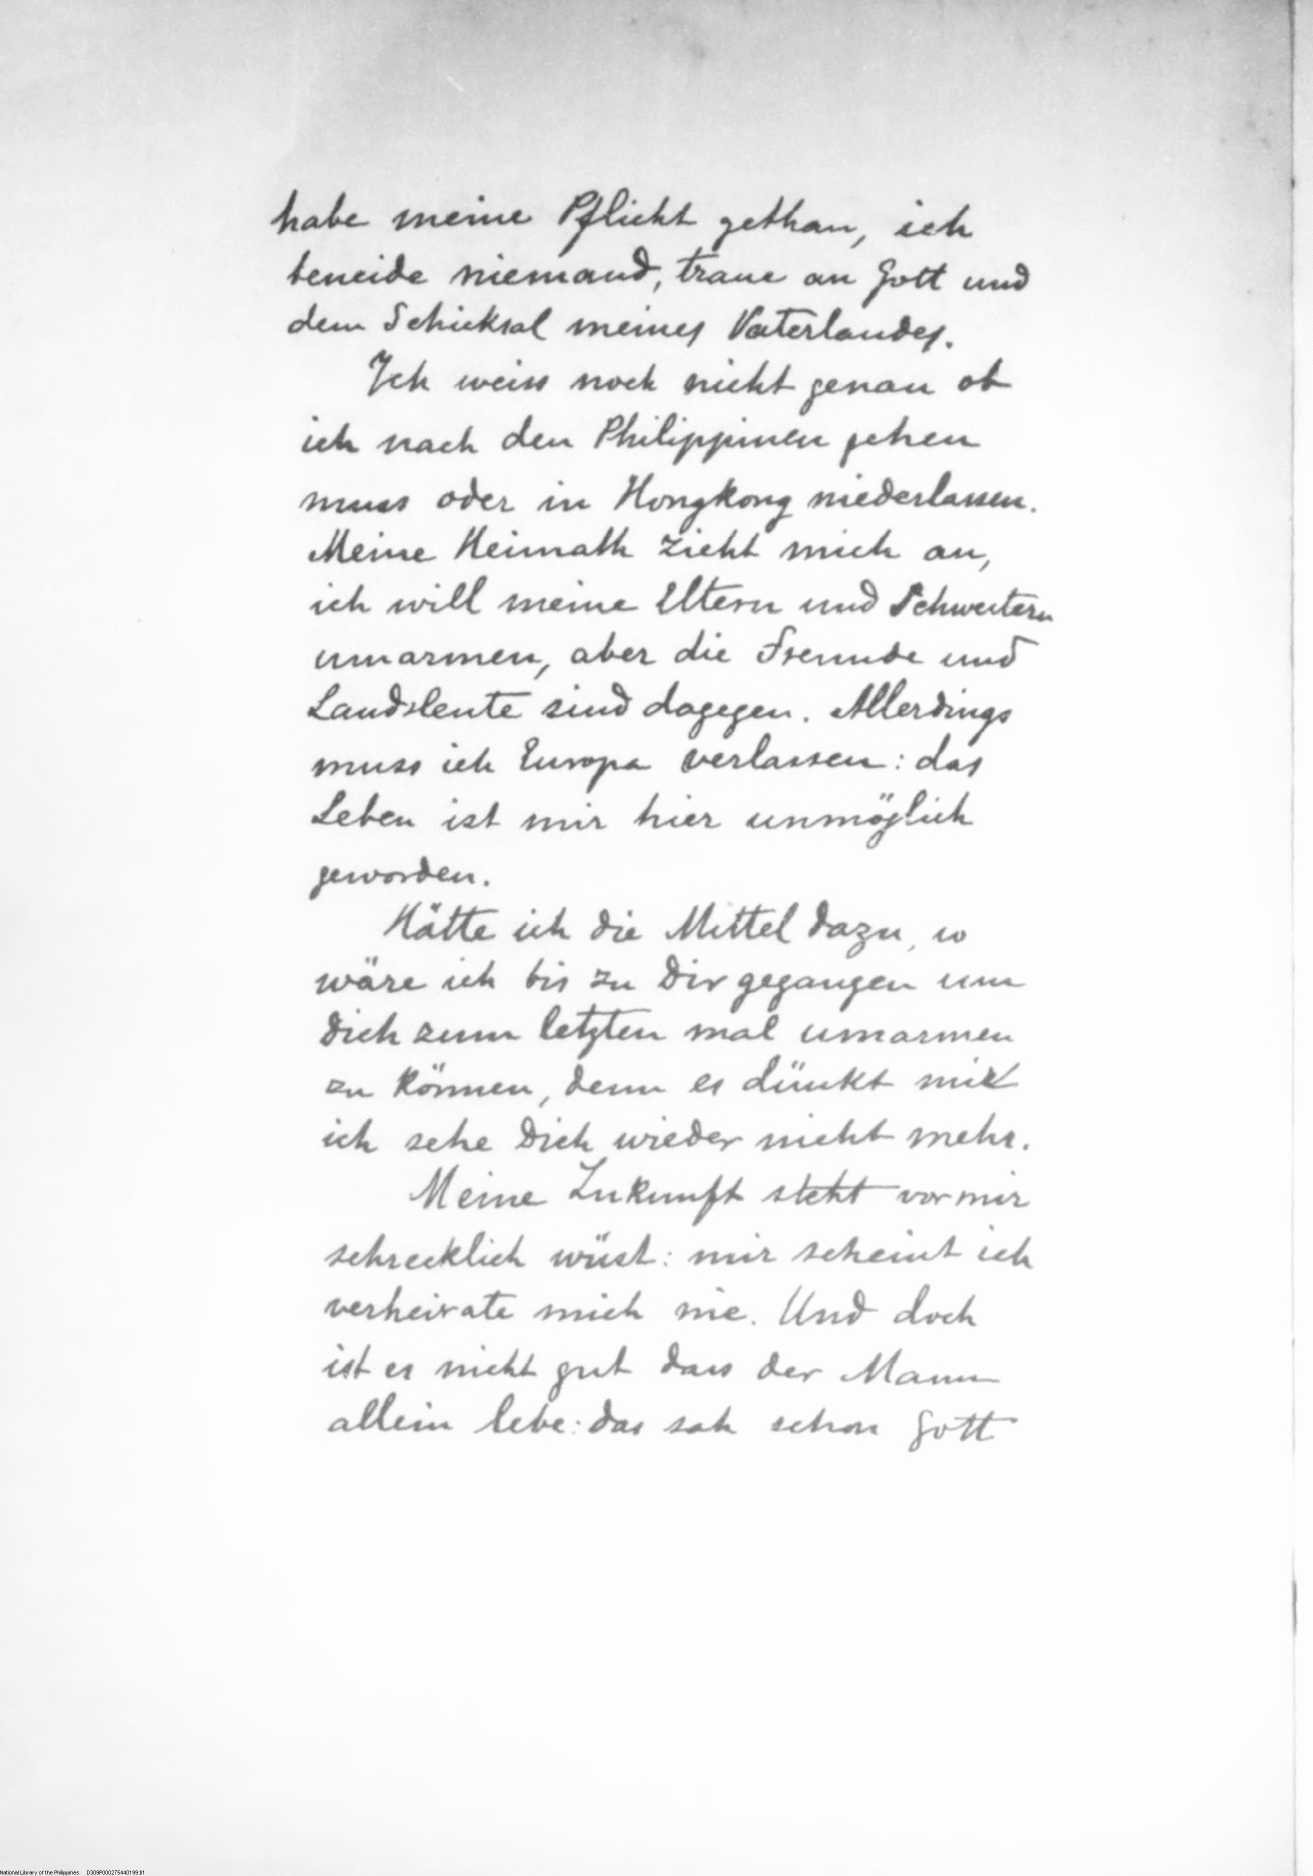 habe meine Pflicht gethan, ich
beneide niemand, traue an Gott und
dem Schicksal meines Vaterlandes.
Ich weiss noch nicht genau ob
ich nach den Philippinen gehen
muss oder in Hongkong niederlassen.
Meine Heimath zieht mich an,
ich will meine Eltern und Schwestern
umarmen, aber die Freunde und
Landsleute sind dagegen. Allerdings
muss ich Europa verlassen: das
Leben ist mir hier unmöglich
geworden.
Hätte ich die Mittel dazu, so
wäre ich bis zu Dir gegangen um
Dich zum letzten mal umarmen
zu können, denn es dünkt mir
ich sehe Dich wieder nicht mehr.
Meine Zukunft steht vor mir
schrecklich wüst: mir scheint ich
verheirate mich nie. Und doch
ist es nicht gut dass der Mann
allein lebe: das sah schon Gott
National Library of the Philippines